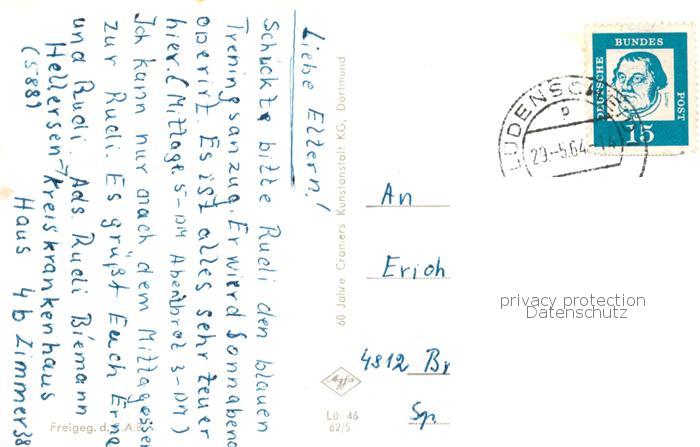 Liebe Eltern!
Schückte bitte Rudi den blauen
Treningsanzug. Er wierd Sonnabend
operirt. Es ist alles sehr teuer
hier. (Mittage 5-DM Abendbrot 3-DM)
Ich kann nur nach dem Mittagessen
zur Rudi. Es grüßt Euch Erna
und Rudi Ads. Rudi Biemann
Hellersen→Kreiskrankenhaus
(588) Haus 4b Zimmer 38
Freigeg. d.
60 Jahre Cramers Kunstanstalt KG, Dortmund
DEUTSCHE
BUNDES
POST
15
LÜDENSCH
p
29.-5.64.-14
An
Erich
4812 Br
Sp.
Agfa
Lü 46
62/5
privacy protection
Datenschutz